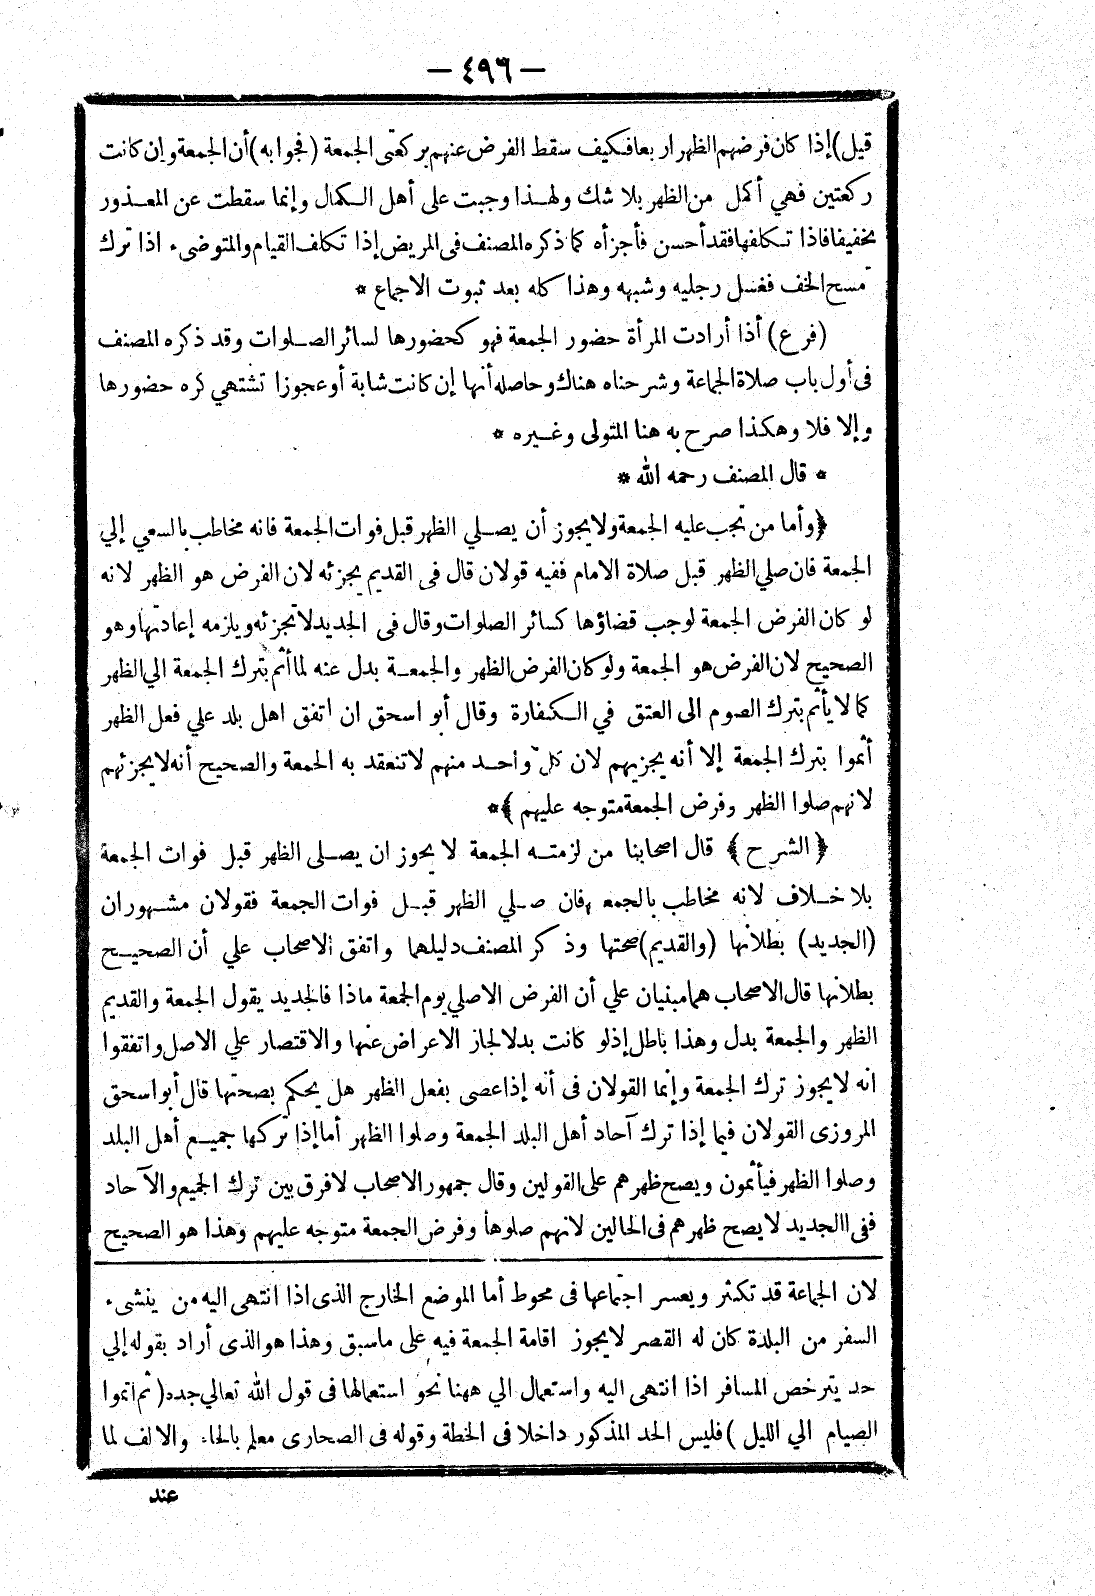 — ٤٩٦ —
قيل) إذا كان فرضهم الظهر اربعا فكيف سقط الفرض عنهم بركعتى الجمعة (فجوابه) أن الجمعة وإن كانت
ركعتين فهي أكمل من الظهر بلا شك ولهذا وجبت على أهل الكمال وإنما سقطت عن المعذور
تخفيفا فاذا تكلفها فقد أحسن فأجزأه كما ذكره المصنف فى المريض إذا تكلف القيام والمتوضىء اذا ترك
مسح الخف فغسل رجليه وشبهه وهذا كله بعد ثبوت الاجماع *
(فرع) أذا أرادت المرأة حضور الجمعة فهو كحضورها لسائر الصلوات وقد ذكره المصنف
فى أول باب صلاة الجماعة وشرحناه هناك وحاصله أنها إن كانت شابة أو عجوزا تشتهي كره حضورها
وإلا فلا وهكذا صرح به هنا المتولى وغيره *
* قال المصنف رحمه الله *
﴿وأما من تجب عليه الجمعة ولا يجوز أن يصلي الظهر قبل فوات الجمعة فانه مخاطب بالسعي إلي
الجمعة فان صلي الظهر قبل صلاة الامام ففيه قولان قال فى القديم يجزئه لان الفرض هو الظهر لانه
لو كان الفرض الجمعة لوجب قضاؤها كسائر الصلوات وقال فى الجديد لا تجزئه ويلزمه إعادتها وهو
الصحيح لان الفرض هو الجمعة ولو كان الفرض الظهر والجمعة بدل عنه لما أثم بترك الجمعة الي الظهر
كما لا يأثم بترك الصوم الى العتق في الكفارة وقال أبو اسحق ان اتفق اهل بلد علي فعل الظهر
أثموا بترك الجمعة إلا أنه يجزيهم لان كل واحد منهم لا تنعقد به الجمعة والصحيح أنه لا يجزئهم
لانهم صلوا الظهر وفرض الجمعة متوجه عليهم﴾*
﴿الشرح﴾ قال اصحابنا من لزمته الجمعة لا يجوز ان يصلى الظهر قبل فوات الجمعة
بلا خلاف لانه مخاطب بالجمعة فان صلي الظهر قبل فوات الجمعة فقولان مشهوران
(الجديد) بطلانها (والقديم) صحتها وذكر المصنف دليلهما واتفق الاصحاب علي أن الصحيح
بطلانها قال الاصحاب هما مبنيان علي أن الفرض الاصلي يوم الجمعة ماذا فالجديد يقول الجمعة والقديم
الظهر والجمعة بدل وهذا باطل إذ لو كانت بدلا لجاز الاعراض عنها والاقتصار علي الاصل واتفقوا
انه لا يجوز ترك الجمعة وإنما القولان فى أنه إذا عصى بفعل الظهر هل يحكم بصحتها قال أبو اسحق
المروزى القولان فيما إذا ترك آحاد أهل البلد الجمعة وصلوا الظهر أما إذا تركها جميع أهل البلد
وصلوا الظهر فيأثمون ويصح ظهرهم على القولين وقال جمهور الاصحاب لا فرق بين ترك الجميع والآحاد
ففى االجديد لا يصح ظهرهم فى الحالين لانهم صلوها وفرض الجمعة متوجه عليهم وهذا هو الصحيح
لان الجماعة قد تكثر ويعسر اجتماعها فى محوط أما الموضع الخارج الذى اذا انتهى اليه من ينشىء
السفر من البلدة كان له القصر لا يجوز اقامة الجمعة فيه على ما سبق وهذا هو الذى أراد بقوله إلي
حد يترخص المسافر اذا انتهى اليه واستعمال الي ههنا نحو استعمالها فى قول الله تعالي جده (ثم اتموا
الصيام الي الليل) فليس الحد المذكور داخلا فى الخطة وقوله فى الصحارى معلم بالحاء والالف لما
عند